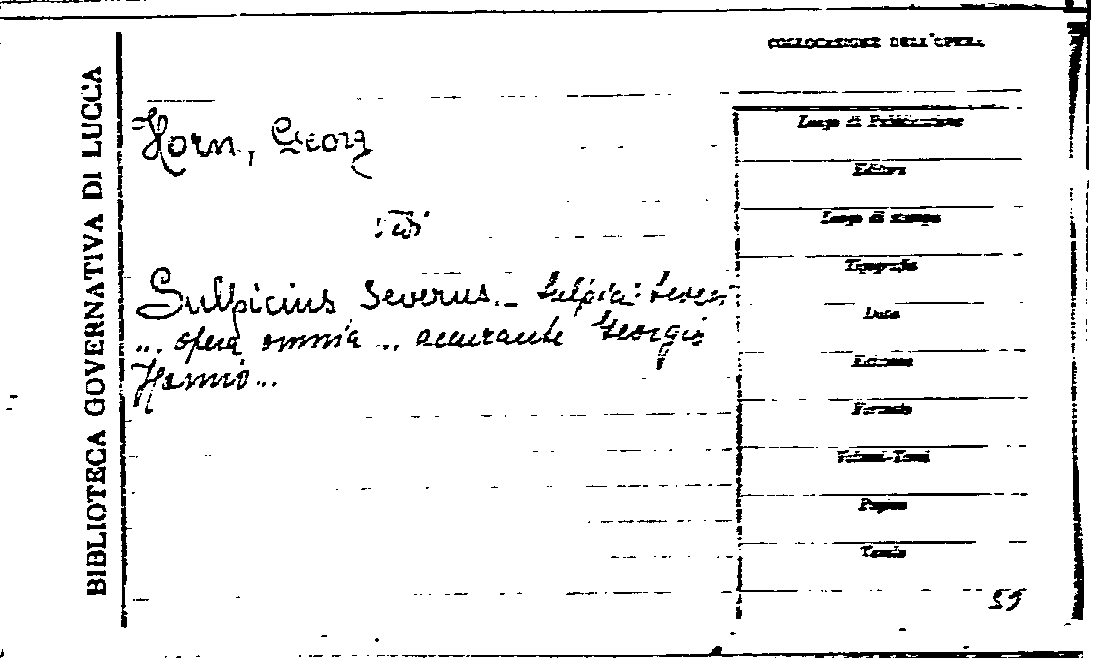 BIBLIOTECA GOVERNATIVA DI LUCCA
COLLOCAZIONE DELL'OPERA
Horn, Georg
vedi
Sulpicius Severus._ Sulpici Severi
... opera omnia ... accurante Georgio
Hornio...
Luogo di Pubblicazione
Editore
Luogo di stampa
Tipografia
Data
Edizione
Formato
Volumi-Tomi
Pagine
Tavole